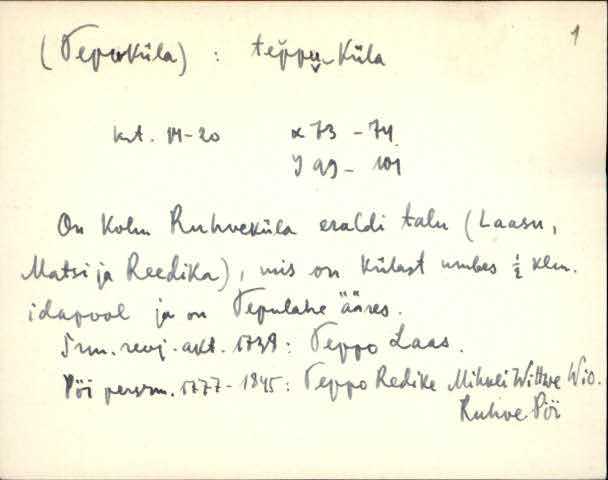 1
(Tepuküla) : tep̆pu̬-küla
krt. 19-20 x 73 - 74
y 99 - 101
On kolm Ruhveküla eraldi talu (Laasu,
Matsi ja Reedika), mis on külast umbes ½ klm.
idapool ja on Tepulahe ääres.
Srm. revj. akt. 1738: Teppo Laas.
Pöi persrm. 1777-1845: Teppo Redike Mihkli Wittwe Wio.
Ruhve Pöi